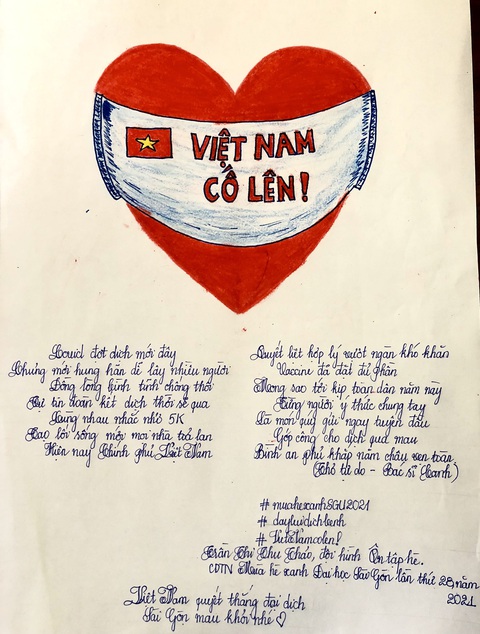 VIỆT NAM
CỐ LÊN!
Covid đợt dịch mới đây
Chủng mới hung hãn dễ lây nhiều người
Đồng lòng bình tĩnh chống thôi
Tự tin đoàn kết dịch thời sẽ qua
Cùng nhau nhắc nhở 5K
Cao lối sống mới mọi nhà toả lan
Hiện nay Chính phủ Việt Nam
Quyết liệt hợp lý vượt ngàn khó khăn
Vaccine đã đặt đủ phần
Mong sao tới kịp toàn dân năm này
Từng người ý thức chung tay
Là món quà gửi ngay tuyến đầu
Góp công cho dịch qua mau
Bình an phủ khắp năm châu vẹn toàn
(Thơ tự do - Bác sĩ Canh)
#muahexanhSGU2021
#dayluidichbenh
#VietNamcolen!
Trần Thị Thu Thảo, đội hình Ôn tập hè.
CDTN Mùa hè xanh Đại học Sài Gòn lần thứ 23, năm
2021
Việt Nam quyết thắng đại dịch
Sài Gòn mau khỏi nhé ♡